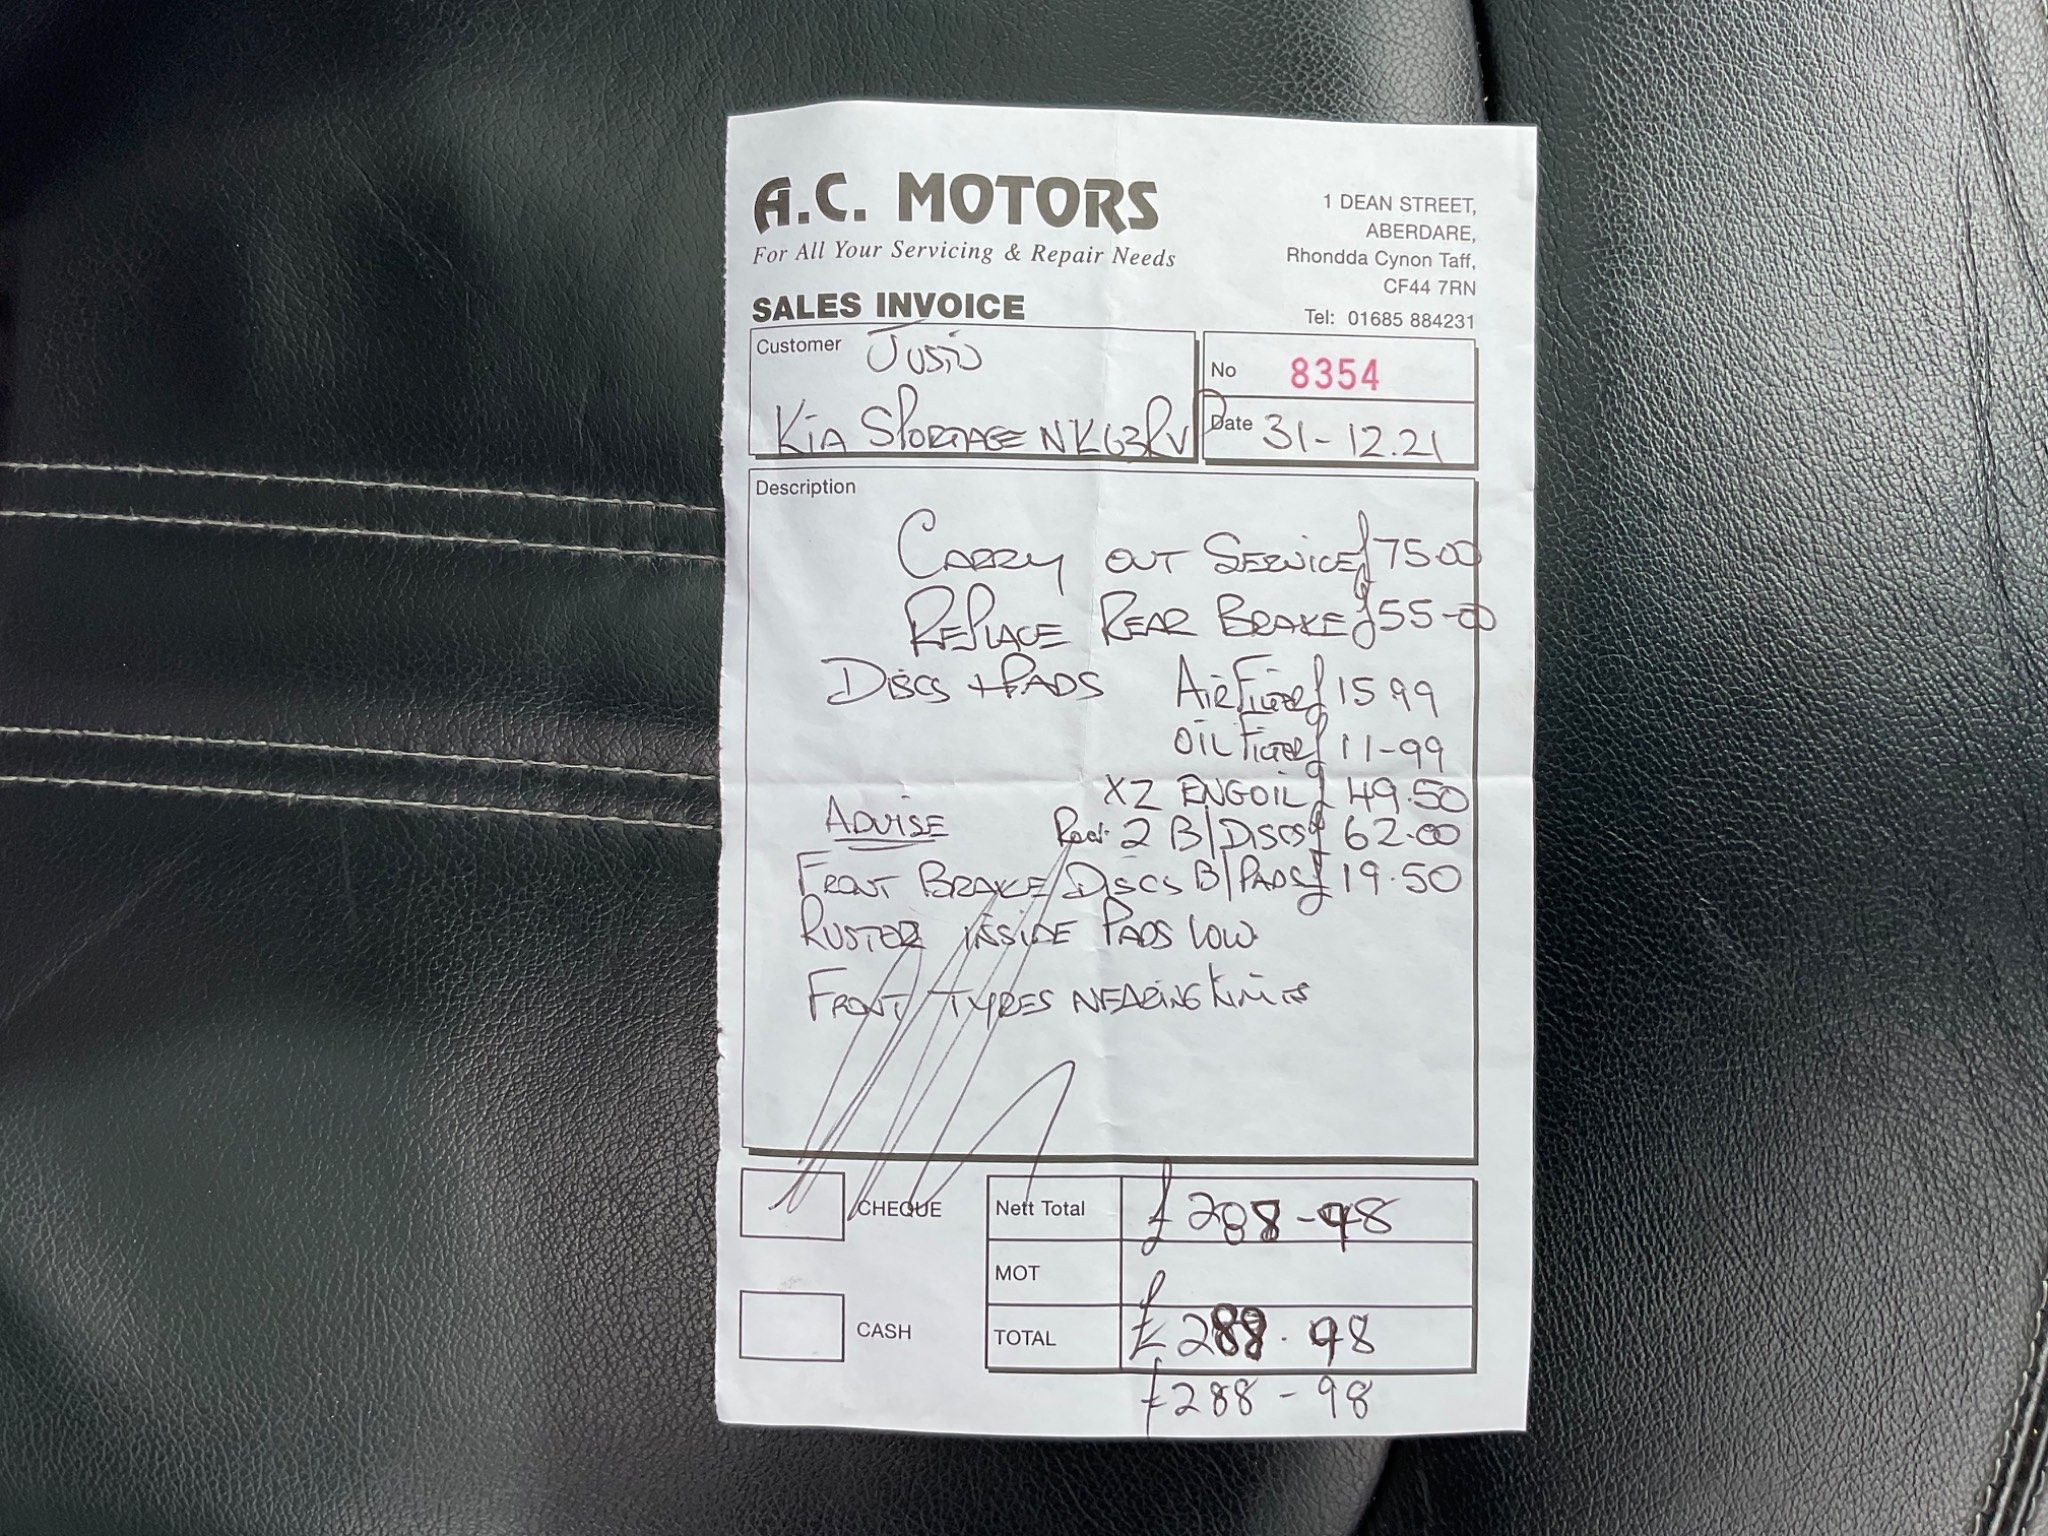 A.C. MOTORS
For All Your Servicing & Repair Needs
1 DEAN STREET,
ABERDARE,
Rhondda Cynon Taff,
CF44 7RN
Tel: 01685 884231
SALES INVOICE
Customer
No 8354
KIA SPORTAGE NK63RVP
Date 31-12.21
Description
CARRY OUT SERVICE £75.00
REPLACE REAR BRAKE £55-00
DISCS + PADS AIR FILTER £15.99
OIL FILTER £11-99
X2 ENG OIL £49.50
ADVISE Rear 2 B/DISCS £62.00
FRONT BRAKE DISCS B/PADS £19.50
INSIDE PADS LOW
FRONT TYRES NEARING LIMITS
CHEQUE
Nett Total £288-98
MOT
CASH
TOTAL £288.98
£288-98